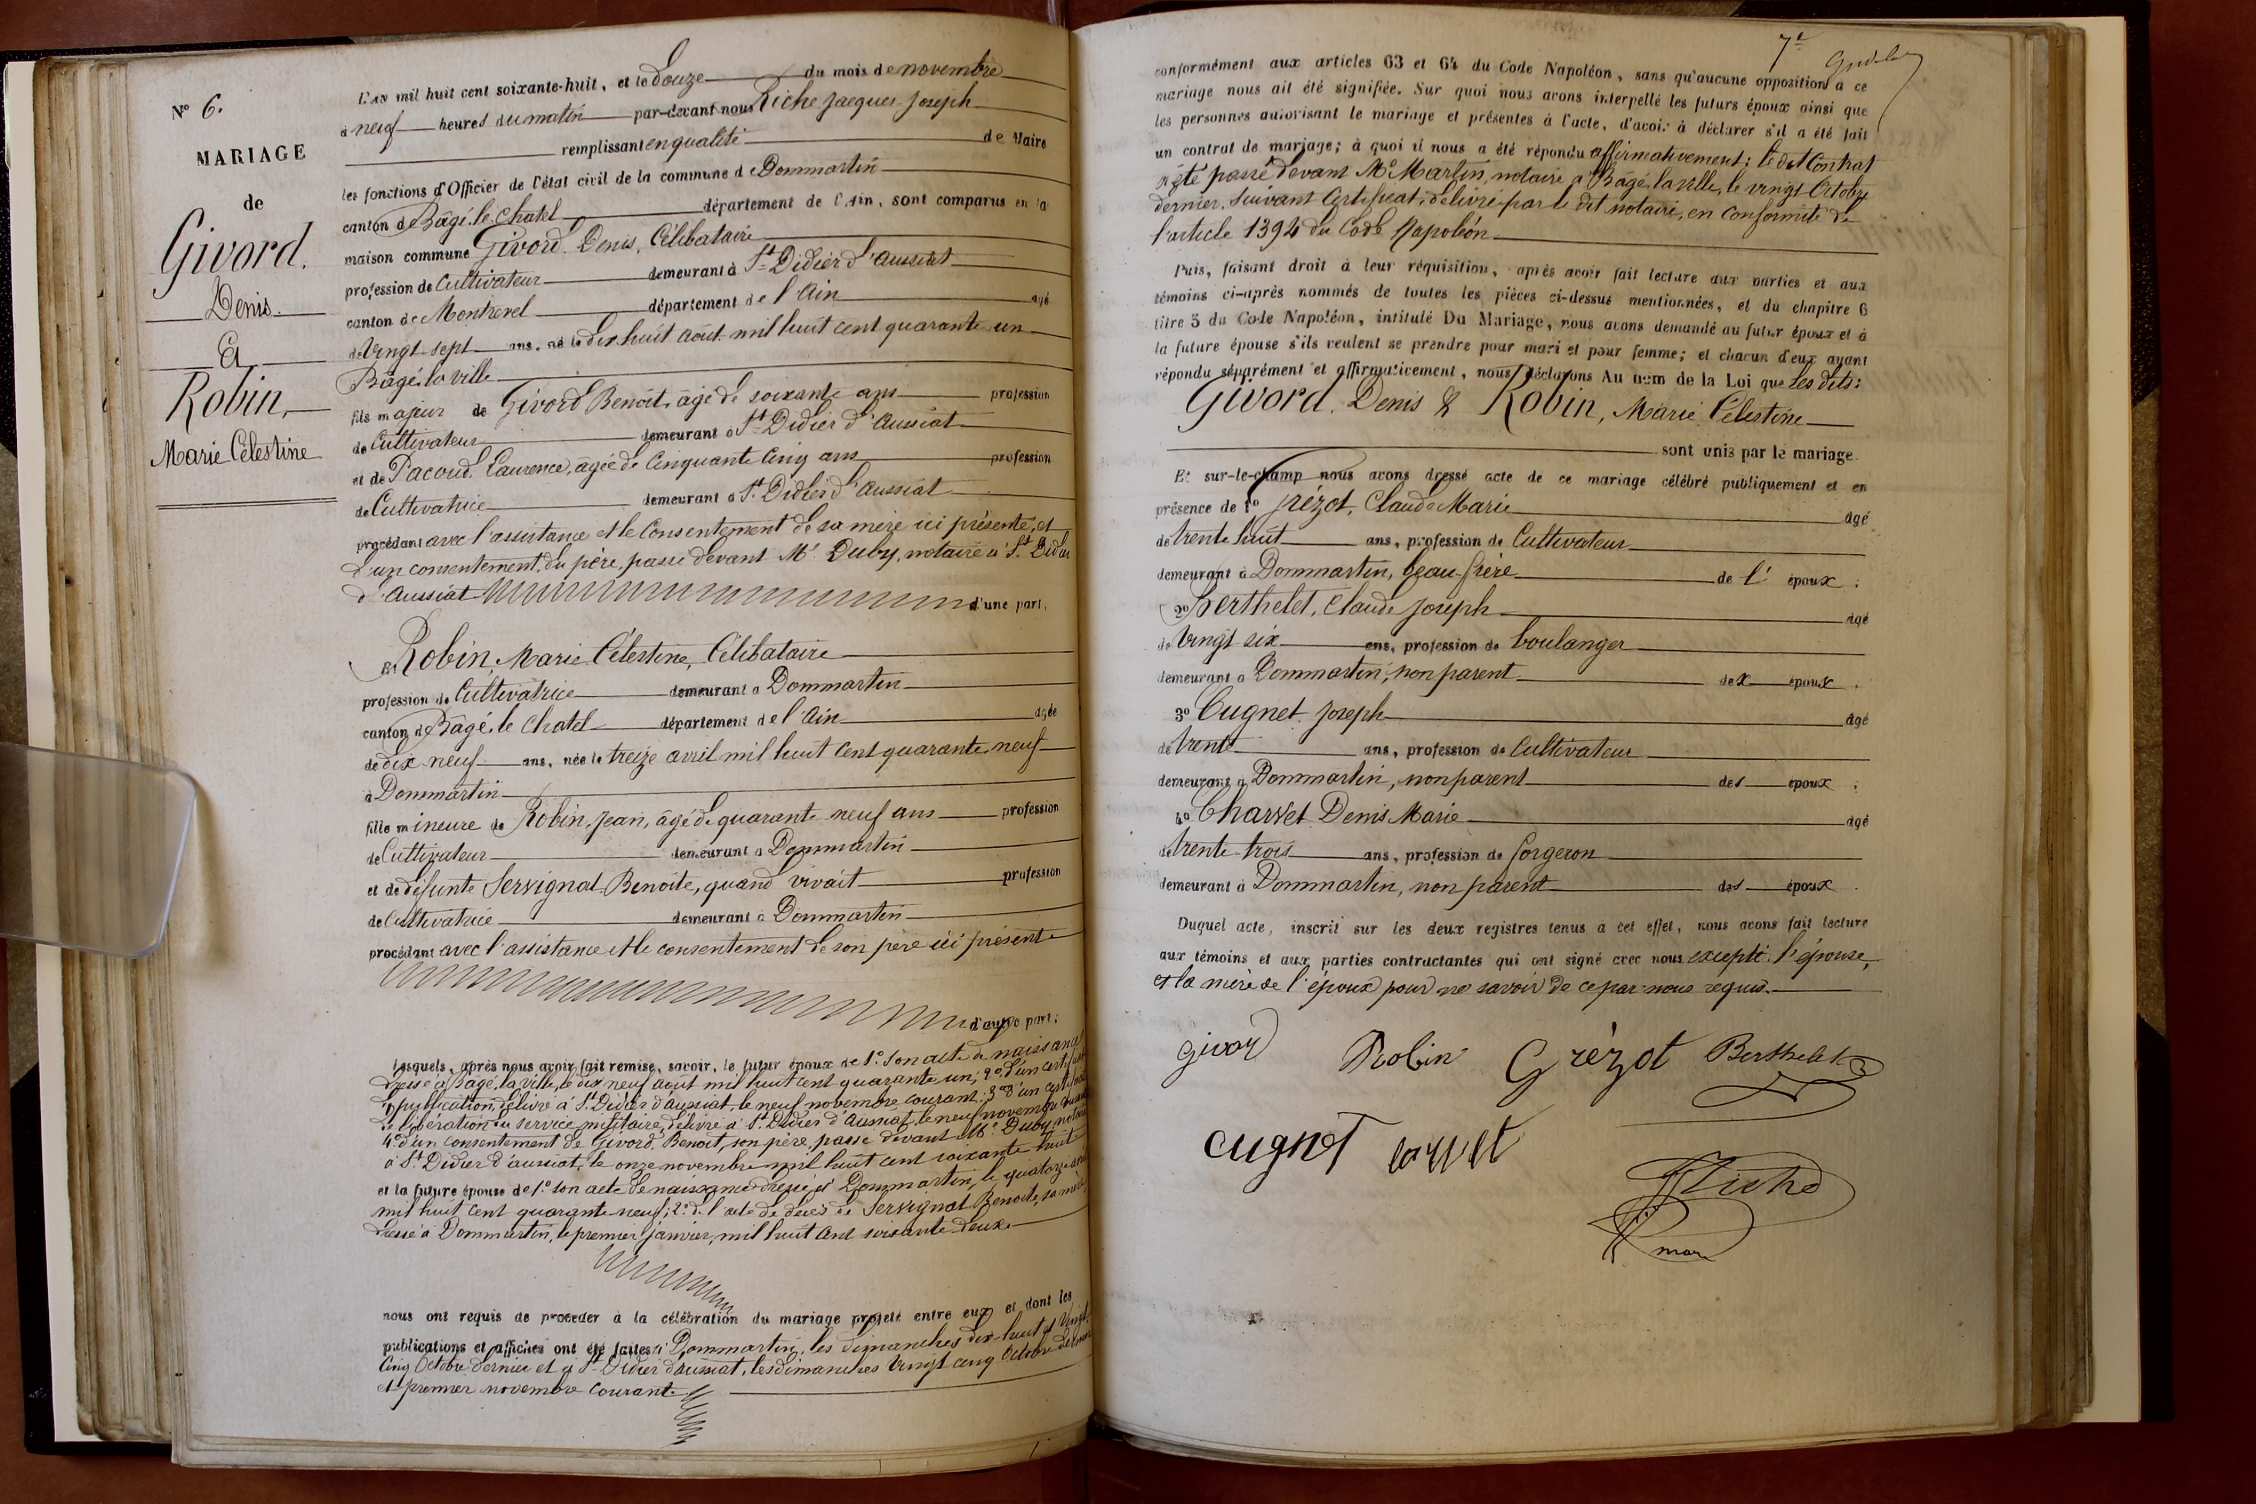 N° 6.
MARIAGE
de
Givord.
Denis.
Et
Robin,
Marie Célestine
L'an mil huit cent soixante-huit, et le Douze du mois de novembre
à neuf heures du matin par-devant nous Riche Jacques Joseph
remplissant en qualité de Maire
les fonctions d'Officier de l'état civil de la commune de Dommartin
canton de Bâgé-le-Chatel département de l'Ain, sont comparus en la
maison commune Givord Denis, Célibataire
profession de Cultivateur demeurant à St Didier d'Aussiat
canton de Montrevel département de l'Ain âgé
de Vingt-sept ans, né le dix huit août mil huit cent quarante un
Bâgé-la-ville
fils majeur de Givord Benoit, âgé de soixante ans profession
de Cultivateur demeurant à St Didier d'Aussiat
et de Pacoud Laurence, âgée de Cinquante Cinq ans profession
de Cultivatrice demeurant à St Didier d'Aussiat
procédant avec l'assistance et le Consentement de sa mère ici présente, et
d'un consentement du père, passé devant Me Duby, notaire à St Didier
d'Aussiat d'une part,
Et Robin, Marie Célestine, Célibataire
profession de Cultivatrice demeurant à Dommartin
canton de Bâgé-le-Chatel département de l'Ain âgée
de dix-neuf ans, née le treize avril mil huit cent quarante neuf
à Dommartin
fille mineure de Robin, Jean, âgé de quarante neuf ans profession
de Cultivateur demeurant à Dommartin
et de défunte Servignat Benoite, quand vivait profession
de Cultivatrice demeurant à Dommartin
procédant avec l'assistance et le consentement de son père ici présent
d'autre part;
Lesquels, après nous avoir fait remise, savoir, le futur époux de 1° son acte de naissance
dressé à Bâgé-la-ville, le dix neuf août mil huit cent quarante un; 2° d'un certificat
de publication, délivré à St Didier d'Aussiat, le neuf novembre courant; 3° d'un certificat
de libération du service militaire, délivré à St Didier d'Aussiat, le neuf novembre courant
4° d'un consentement de Givord Benoit, son père, passé devant Me Duby, notaire
à St Didier d'aussiat, le onze novembre mil huit cent soixante huit
et la future épouse de 1° son acte de naissance dressé à Dommartin, le quatorze avril
mil huit cent quarante neuf; 2° de l'acte de décès de Servignat Benoite, sa mère,
dressé à Dommartin, le premier janvier, mil huit cent soixante deux
nous ont requis de procéder à la célébration du mariage projeté entre eux et dont les
publications et affiches ont été faites à Dommartin, les dimanches dix-huit et Vingt
Cinq Octobre dernier et à St Didier d'aussiat, les dimanches Vingt cinq Octobre dernier
et premier novembre courant
7e
conformément aux articles 63 et 64 du Code Napoléon, sans qu'aucune opposition à ce
mariage nous ait été signifiée. Sur quoi nous avons interpellé les futurs époux ainsi que
les personnes autorisant le mariage et présentes à l'acte, d'avoir à déclarer s'il a été fait
un contrat de mariage; à quoi il nous a été répondu affirmativement; le dit Contrat
a été passé devant Me Martin, notaire à Bâgé-la-ville, le vingt Octobre
dernier, suivant Certificat délivré par le dit notaire, en conformité de
l'article 1394 du Code Napoléon
Puis, faisant droit à leur réquisition, après avoir fait lecture aux parties et aux
témoins ci-après nommés de toutes les pièces ci-dessus mentionnées, et du chapitre 6
titre 5 du Code Napoléon, intitulé Du Mariage, nous avons demandé au futur époux et à
la future épouse s'ils veulent se prendre pour mari et pour femme; et chacun d'eux ayant
répondu séparément et affirmativement, nous déclarons Au nom de la Loi que Les dits:
Givord, Denis & Robin, Marie Célestine
sont unis par le mariage.
Et sur-le-champ nous avons dressé acte de ce mariage célébré publiquement et en
présence de 1° Grézot, Claude Marie âgé
de trente huit ans, profession de Cultivateur
demeurant à Dommartin, beau-frère de l' époux;
2° Berthelet, Claude Joseph âgé
de Vingt six ans, profession de boulanger
demeurant à Dommartin, non parent dex époux.
3° Cugnet Joseph âgé
de trente ans, profession de Cultivateur
demeurant à Dommartin, non parent des époux;
4° Charvet Denis Marie âgé
de trente-trois ans, profession de forgeron
demeurant à Dommartin, non parent des époux.
Duquel acte, inscrit sur les deux registres tenus à cet effet, nous avons fait lecture
aux témoins et aux parties contractantes qui ont signé avec nous excepté l'épouse,
et la mère de l'époux pour ne savoir de ce par nous requis.
Givord Robin Grézot Berthelet
cugnet
Riche